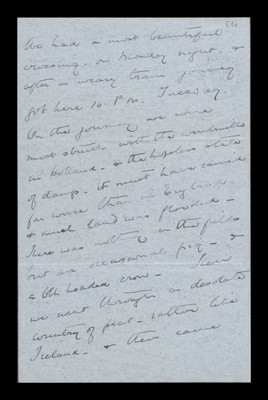 We had a most beautiful
crossing. on Monday night. &
after a weary train journey
got here 10. P.m. Tuesday.
On the journey we were
most struck with the windmills
in Holland. & the hopeless state
of damp. it must have rained
far worse than in England.
& much land was flooded.
There was nothing in the fields
but an occasional pig. &
a headed crow. Then
we went through a desolate
country of peat. rather like
Ireland. & then came